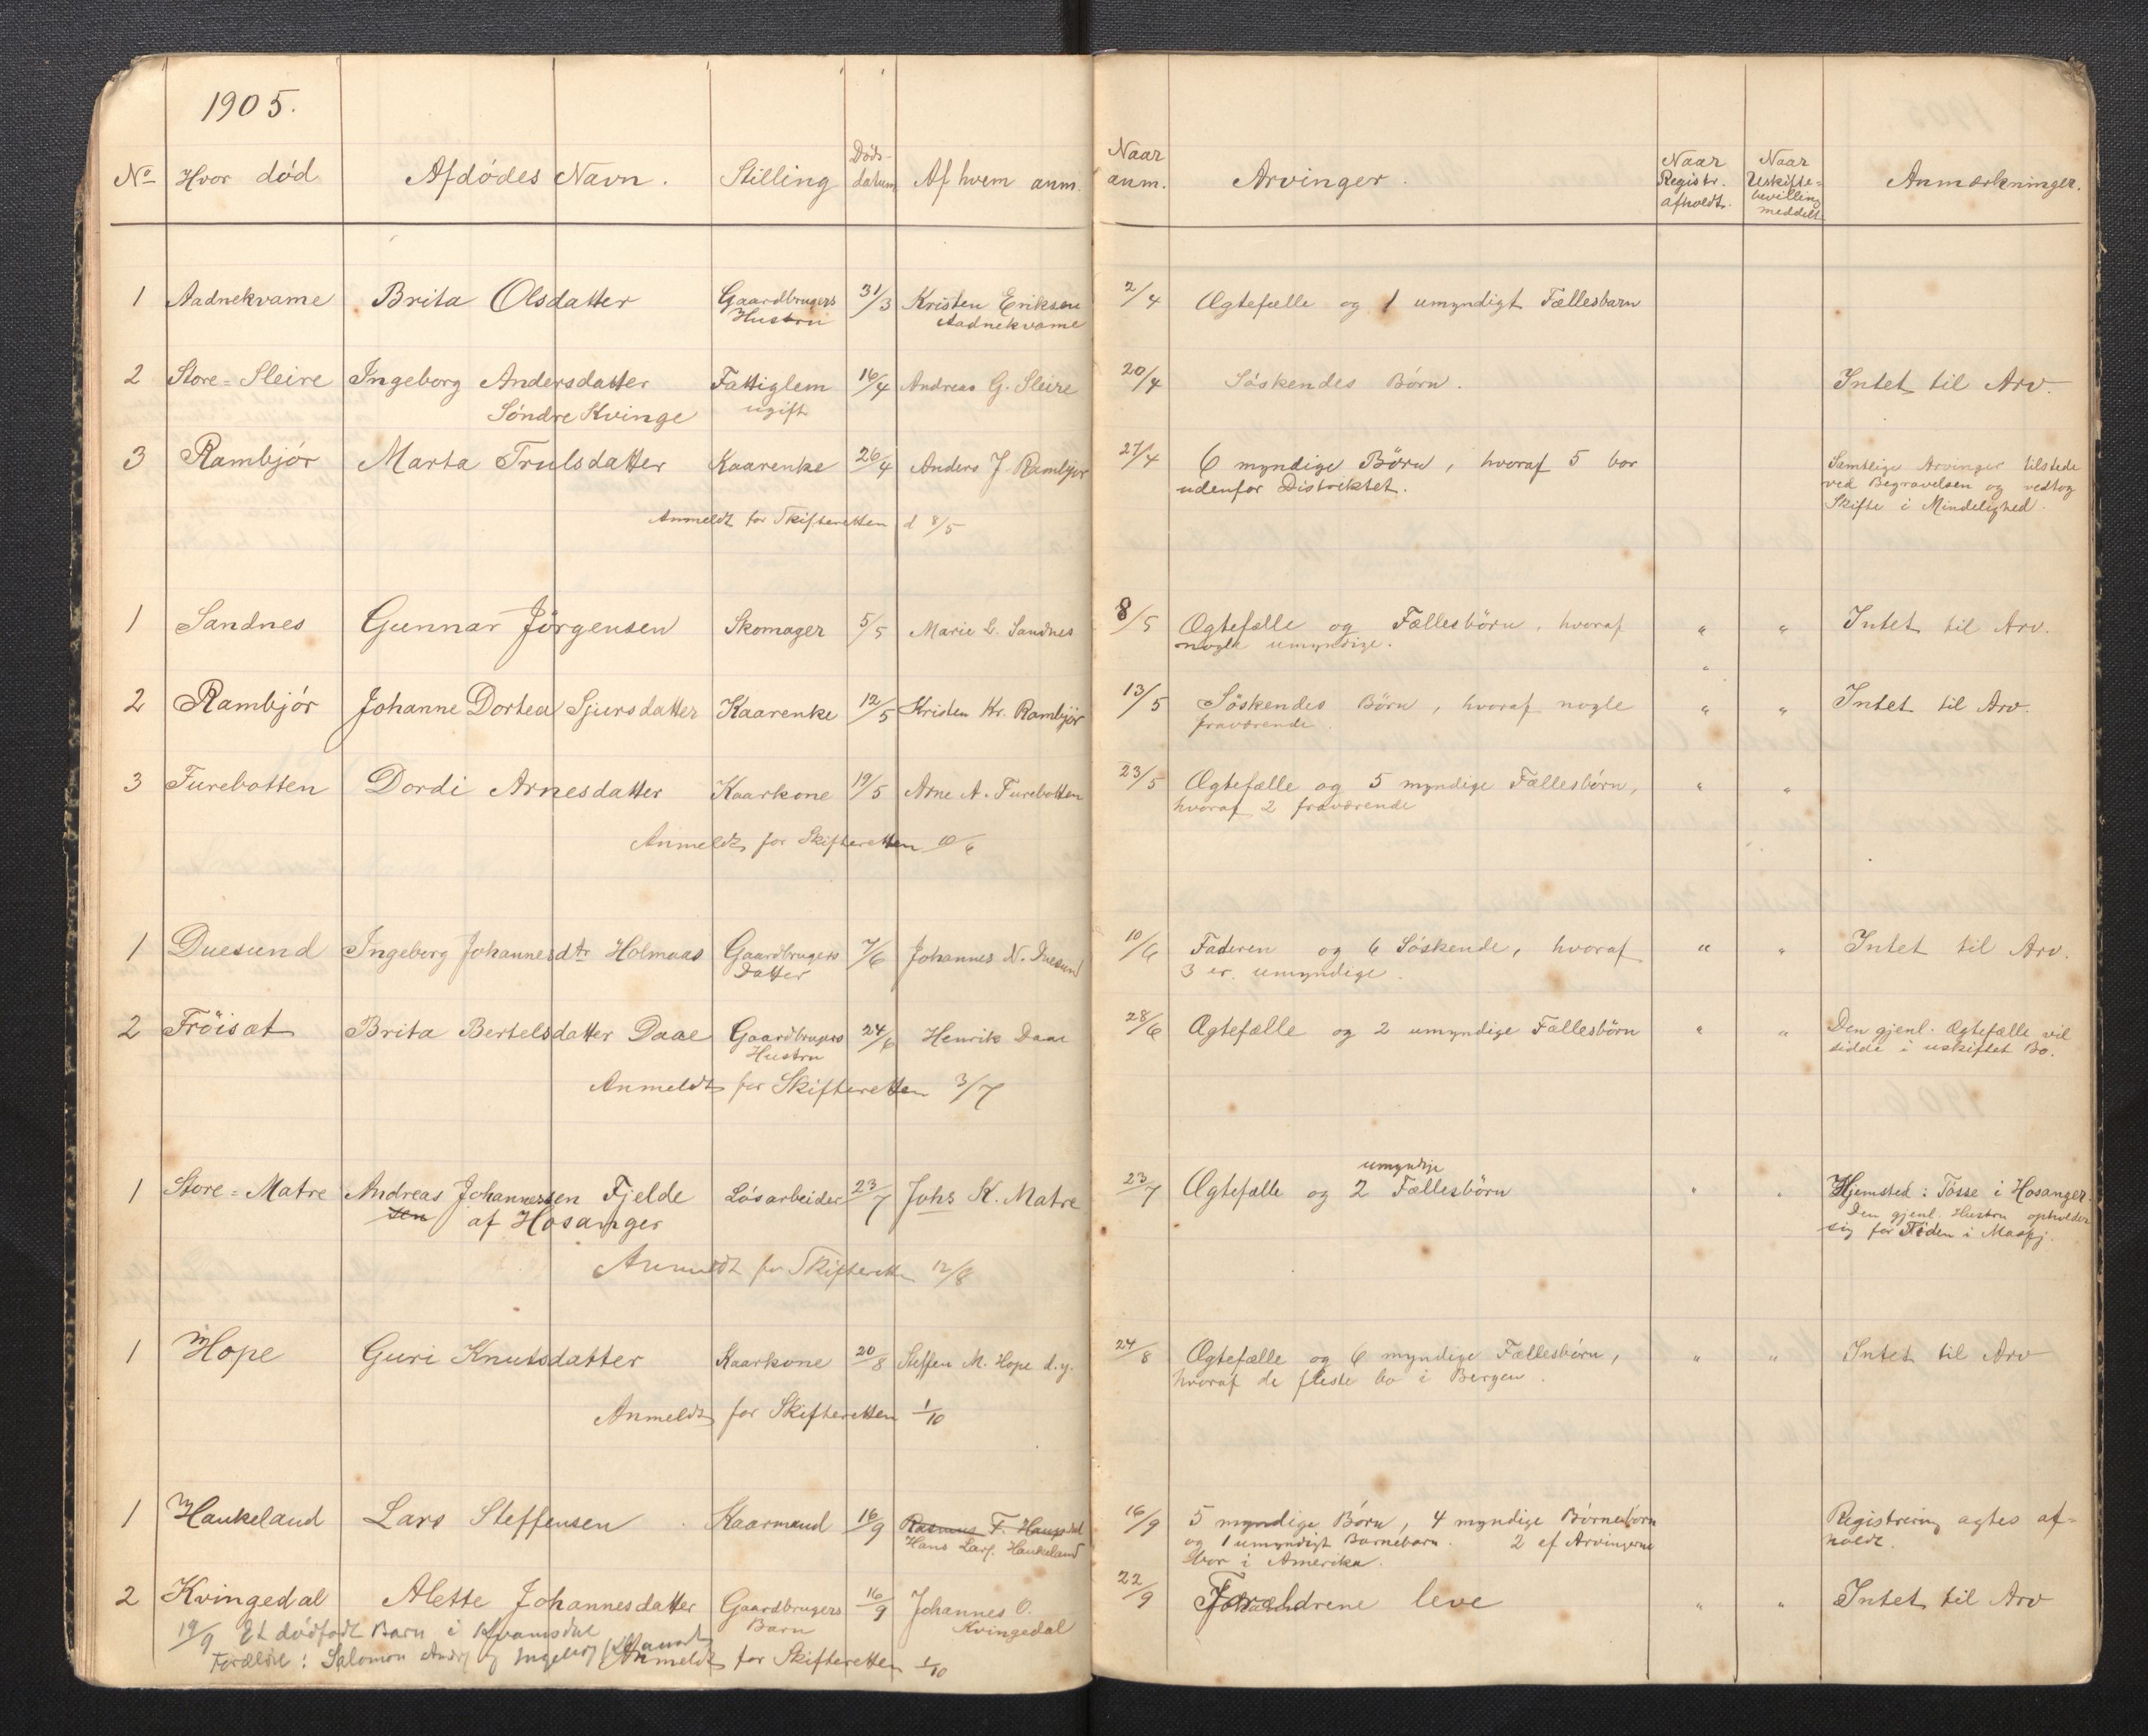 1905.
No Hvor död Afdödes Navn. Stilling Döds-datum Af hvem anm. Naar anm. Arvinger. Naar Registr. afholdt. Naar Uskifte-bevilling meddelt Anmærkninger.
1 Aadnekvame Brita Olsdatter Gaardbrugers 31/3 Kristen Eriksen 2/4 Ægtefælle og 1 umyndigt Fællesbarn
Hustru Aadnekvame
2 Store-Sleire Ingeborg Andersdatter Fattiglem 16/4 Andreas G. Sleire 20/4 Söskendes Börn. Intet til Arv.
Söndre Kvinge ugift
3 Rambjör Marta Trulsdatter Kaarenke 26/4 Anders J Rambjör 27/4 6 myndige Börn, hvoraf 5 bor Samtlige Arvinger tilstede
udenfor Distriktet. ved Begravelsen og vedtog
Skifte i Mindelighed.
Anmeldt for Skifteretten d 8/5
1 Sandnes Gunnar Jörgensen Skomager 5/5 Marie L. Sandnes 8/5 Ægtefælle og Fællesbörn, hvoraf " " Intet til Arv.
nogle umyndige. "
2 Rambjör Johanne Dortea Sjursdatter Kaarenke 12/5 Kristen Kr. Rambjör 13/5 Söskendes Börn, hvoraf nogle " " Intet til Arv.
fraværende.
3 Furebotten Dordi Arnesdatter Kaarkone 19/5 Arne A. Furebotten 23/5 Ægtefælle og 5 myndige Fællesbörn, " "
hvoraf 2 fraværende
Anmeldt for Skifteretten 10/6
1 Duesund Ingeborg Johannesdtr Holmaas Gaardbrugers 7/6 Johannes N. Duesund 10/6 Faderen og 6 Söskende, hvoraf " " Intet til Arv.
Datter 3 er umyndige.
2 Fröiset Brita Bertelsdatter Daae Gaardbrugers 24/6 Henrik Daae 28/6 Ægtefælle og 2 umyndige Fællesbörn " " Den gjenl. Ægtefælle vil
Hustru sidde i uskiftet Bo.
Anmeldt for Skifteretten 3/7
umyndige
1 Store-Matre Andreas Johannessen Fjelde Lösarbeider 23/7 Johs K. Matre 23/7 Ægtefælle og 2 Fællesbörn " " Hjemsted: Tösse i Hosanger.
sen af Hosanger Den gjenl. Hustru opholder
sig for Töden i Masfj.
Anmeldt for Skifteretten 12/8
1 Hope Guri Knutsdatter Kaarkone 20/8 Steffen M. Hope d.y. 24/8 Ægtefælle og 6 myndige Fællesbörn, " " Intet til Arv
hvoraf de fleste bo i Bergen.
Anmeldt for Skifteretten 1/10
1 Haukeland Lars Steffensen Kaarmand 16/9 Rasmus F. 16/9 5 myndige Börn, 4 myndige Börnebörn Registrering agtes af-
Hans Lars. Haukeland og 1 umyndigt Barnebarn. 2 af Arvingerne holdt.
bor i Amerika.
2 Kvingedal Alette Johannesdatter Gaardbrugers 16/9 Johannes O. 22/9 Forældrene leve " " Intet til Arv
Barn Kvingedal
19/9 Et dödfödt Barn i Kvamsdal
Forældre: Salomon Andr og Ingeborg
Anmeldt for Skifteretten 1/10